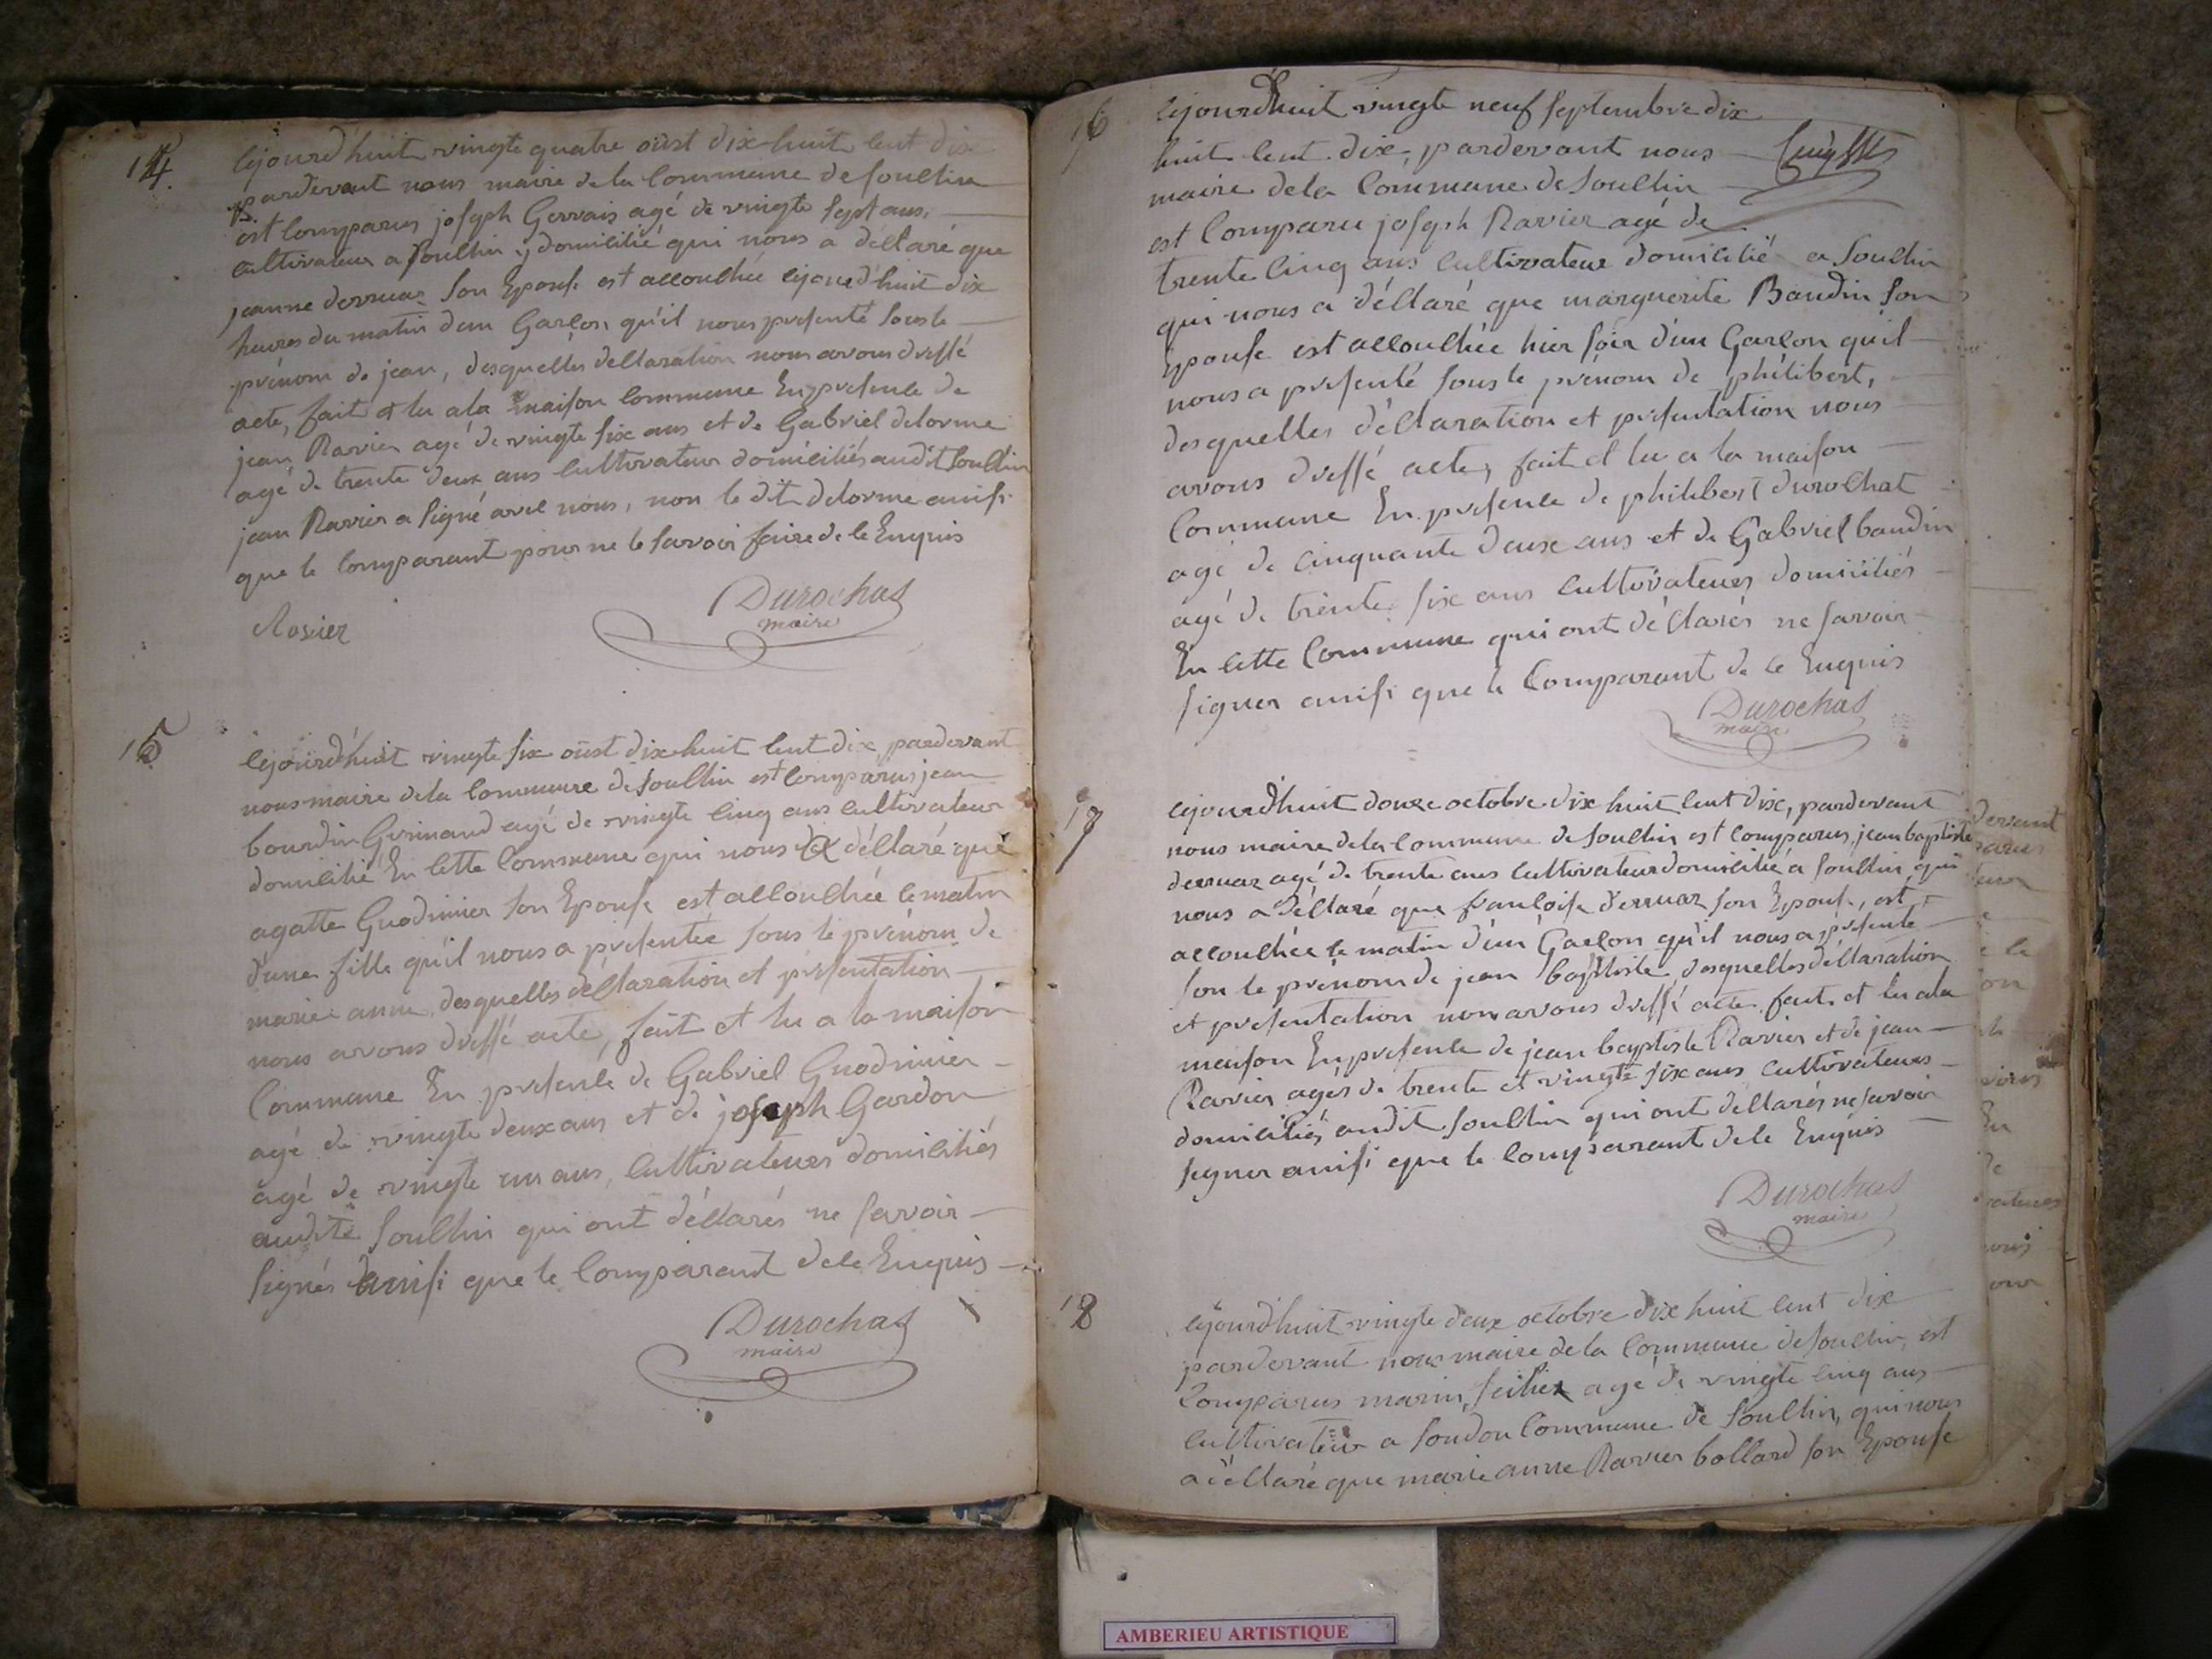 14
Cejourd'huit vingte quatre oûst dix-huit cent dix
pardevant nous maire de la Commune de Souclin
est Comparus joseph Gervais agé de vingte sept ans,
cultivateur a Souclin y domicilié qui nous a déclaré que
jeanne derruaz son Epouse est accouchée cejourd'huit dix
heures du matin d'un Garçon qu'il nous presenté sous le
prénom de jean, desquelles declaration nous avons dressé
acte, fait et lu a la maison commune En presence de
jean Ravier agé de vingte six ans et de Gabriel delorme
agé de trente deux ans cultivateur domiciliés audit Souclin
jean Ravier a signé avec nous, non le dit delorme ainsi
que le comparant pour ne le savoir faire de ce Enquis
Durochas
maire
15
Cejourd'huit vingte six oûst dix huit cent dix pardevant
nous maire de la Commune de Souclin est comparus jean
bourdin Grimand agé de vingte cinq ans cultivateur
domicilié En cette Commune qui nous a déclaré que
agatte Guodinier son Epouse est accouchée ce matin
d'une fille qu'il nous a presentée sous le prénom de
marie anne, desquelles déclaration et presentation
nous avons dressé acte, fait et lu a la maison
Commune En presence de Gabriel Guodinier
agé de vingte deux ans et de joseph Gardon
agé de vingte un ans, Cultivateurs domiciliés
audite Souclin qui ont déclarés ne savoir
signés ainsi que le Comparant de ce Enquis
Durochas
maire
16
Cejourdhuit vingte neuf septembre dix
huit cent dix, pardevant nous
maire de la Commune de Souclin
est Comparu joseph Ravier agé de
trente cinq ans Cultivateur domicilié a Souclin
qui nous a déclaré que marguerite Baudin son
Epouse est accouchée hier soir d'un Garçon qu'il
nous a presenté sous le prénom de philibert,
desquelles déclaration et presentation nous
avons dressé acte, fait et lu a la maison
Commune En presence de philibert durochat
agé de cinquante deux ans et de Gabriel baudin
agé de trente six ans cultivateurs domiciliés
En cette Commune qui ont déclarés ne savoir
signer ainsi que le Comparant de ce Enquis
Durochas
maire
17
Cejourdhuit douze octobre dix huit cent dix, pardevant
nous maire de la Commune de Souclin est comparus, jean baptiste
derruaz agé de trente ans cultivateur domicilié a Souclin, qui
nous a déclaré que francoise derruaz son Epouse, est
accouchée ce matin d'un Gaçon qu'il nous a presenté
sou le prénom de jean baptiste, desquelles déclaration
et presentation nous avons dressé acte fait et lu a la
maison En presence de jean baptiste Ravier et de jean
Ravier agés de trente et vingte six ans cultivateurs
domiciliés audit Souclin qui ont declarés ne savoir
signer ainsi que le comparant de ce Enquis
Durochas
maire
18
Cejourdhuit vingte deux octobre dix huit cent dix
pardevant nous maire de la Commune de Souclin, est
Comparus marin agé de vingte cinq ans
cultivateur a Soudon Commune de Souclin, qui nous
a déclaré que marie anne Ravier bollard son Epouse
AMBERIEU ARTISTIQUE